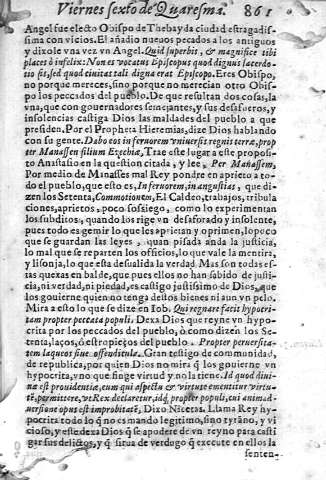 Viernes sexto de Quaresma. 861
Angel fue electo Obispo de Thebayda ciudad estragadis-
sima con vicios. El añadio nueuos pecados a los antiguos
y dixole vna vez vn Angel. Quid superbis, & magnifice tibi
places ò infelix: Non es vocatus Episcopus quod dignus sacerdo-
tio sis, sed quod ciuitas tali digna erat Episcopo. Eres Obispo,
no porque mereces, sino porque no merecian otro Obis-
po los peccados del pueblo. De que resultan dos cosas, la
vna, que con gouernadores semejantes, y sus desafueros, y
insolencias castiga Dios las maldades del pueblo a que
presiden. Por el Propheta Hieremias, dize Dios hablando
con su gente. Dabo eos in feruorem vniuersis regnis terræ, prop
ter Manassen filium Ezechiæ, Trae este lugar a este proposi-
to Anastasio en la question citada, y lee, Per Manassem,
Por medio de Manasses mal Rey pondre en aprieto a to-
do el pueblo, que esto es, In feruorem, in angustias, que di-
zen los Setenta, Commotionem, El Caldeo, trabajos, tribula
ciones, aprietos, poco sossiego, como lo experimentan
los subditos, quando los rige vn desaforado y insolente,
pues todo es gemir lo que les aprietan y oprimen, lo poco
que se guardan las leyes, quan pisada anda la justicia,
lo mal que se reparten los officios, lo que vale la mentira,
y lisonja, lo que esta desualida la verdad. Mas son todas es-
tas quexas en balde, que pues ellos no han sabido de justi-
cia, ni verdad, ni piedad, es castigo justissimo de Dios, que
los gouierne quien no tenga destos bienes ni aun vn pelo.
Mira a esto lo que se dize en Iob. Qui regnare facit hypocri-
tam propter peccata populi. Dexa Dios que reyne vn hypo-
crita por los peccados del pueblo, ò como dizen los Se-
tenta, laços, ò estropieços del pueblo. Propter peruersita-
tem laqueos siue offendicula. Gran testigo de comunidad,
de republica, por quien Dios no mira q̃ los gouierne vn
hypocrita, vno que finge virtud y no la tiene. Id quod diuinæ
est prouidentiæ, cum qui aspectu & virtute ementitur virtu-
tẽ, permittere, vt Rex declaretur, idq́; propter populi, cui animad-
uersione opus est improbitatẽ, Dixo Nicetas. Llama Rey hy-
pocrita todo lo q̃ no es mando legitimo, sino tyrano, y vi
cioso, y este dexa Dios q̃ se apodere de vn reyno para casti
gar sus delictos, y q̃ situa de verdugo q̃ execute en ellos la
senten-